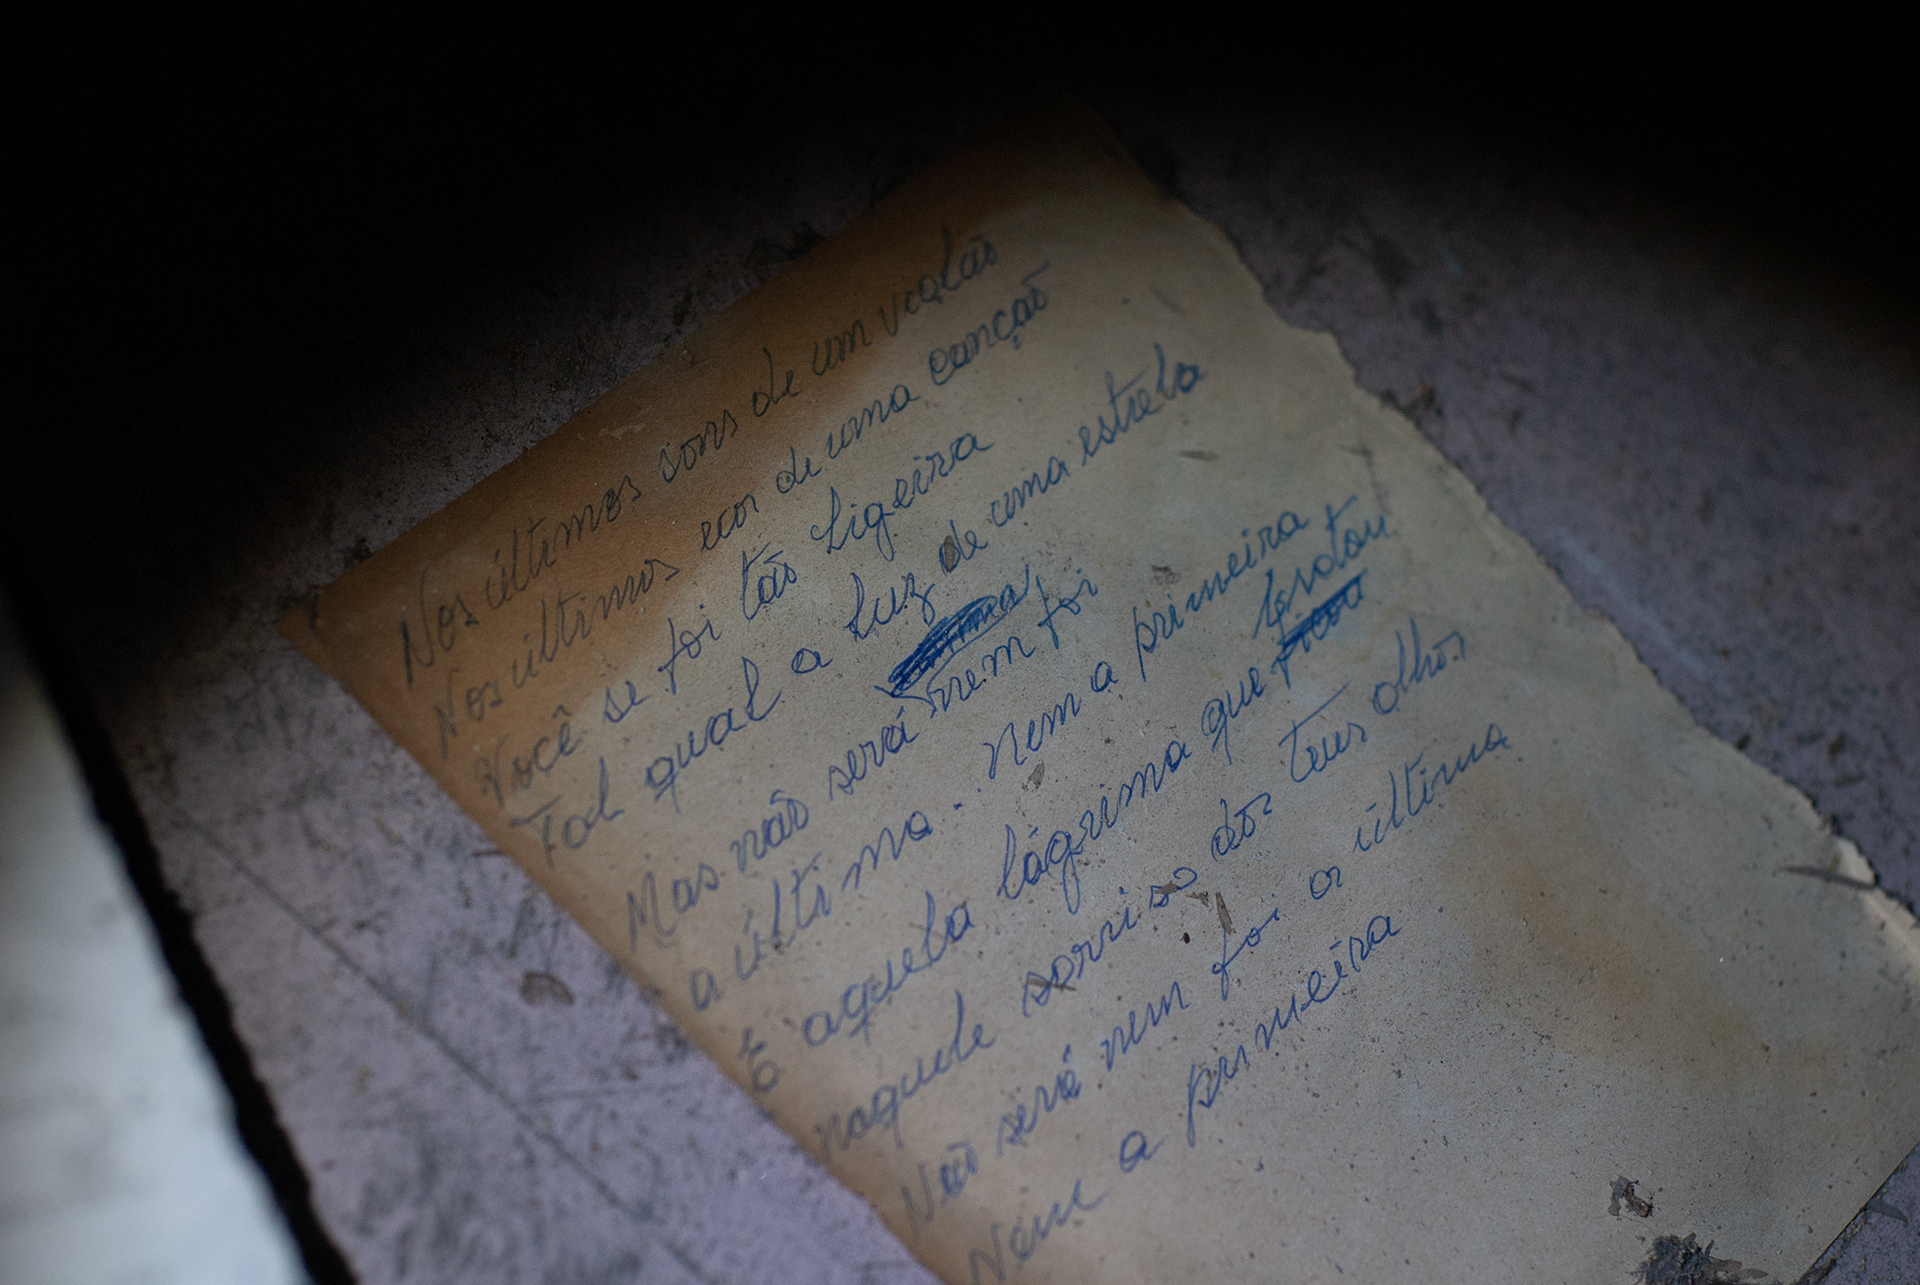 Nos últimos sons de um violão
Nos últimos ecos de uma canção
Você se foi tão ligeira
Tal qual a luz de uma estrela
Mas não será nem foi
a última. Nem a primeira
É aquela lágrima que brotou
naquele sorriso dos teus olhos
Não será nem foi a última
Nem a primeira